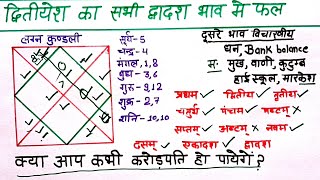 द्वितीयेश का सभी द्वादश भाव मे फल
लग्न कुण्डली
सूर्य - 5
चन्द्र - 4
मंगल - 1, 8
बुध - 3, 6
गुरु - 9, 12
शुक्र - 2, 7
शनि - 10, 10
दूसरे भाव विचारणीय
धन, Bank balance
मुख, वाणी, कुटुम्ब
हाई स्कूल, मारकेश
प्रथम द्वितीय तृतीय
चतुर्थ पंचम षष्टम्
सप्तम् अष्टम् नवम
दसम् एकादश द्वादश
क्या आप कभी करोड़पति हो पायेगे?